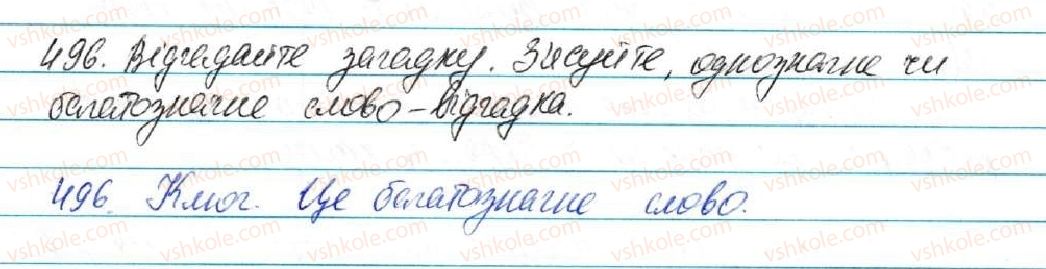 496. Відгадайте загадку. З'ясуйте, однозначне чи
багатозначне слово-відгадка.
496. Ключ. Це багатозначне слово.